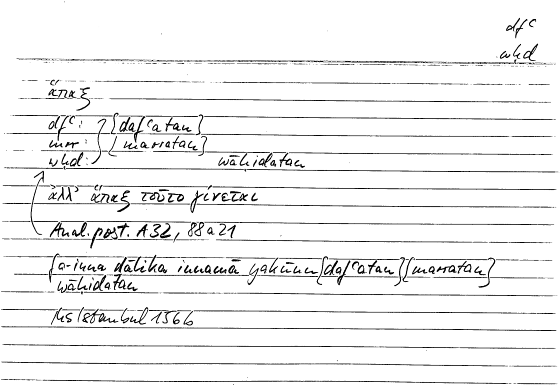 dfᶜ
wḥd
ἅπαξ
dfᶜ: [dafᶜatan]
mrr: [marratan]
wḥd: wāḥidatan
ἀλλ’ ἅπαξ τοῦτο γίνεται
Anal. post. A 32, 88 a 21
fa-inna ḏālika innamā yakūnu [dafᶜatan] [marratan]
wāḥidatan
Ms Istanbul 1366